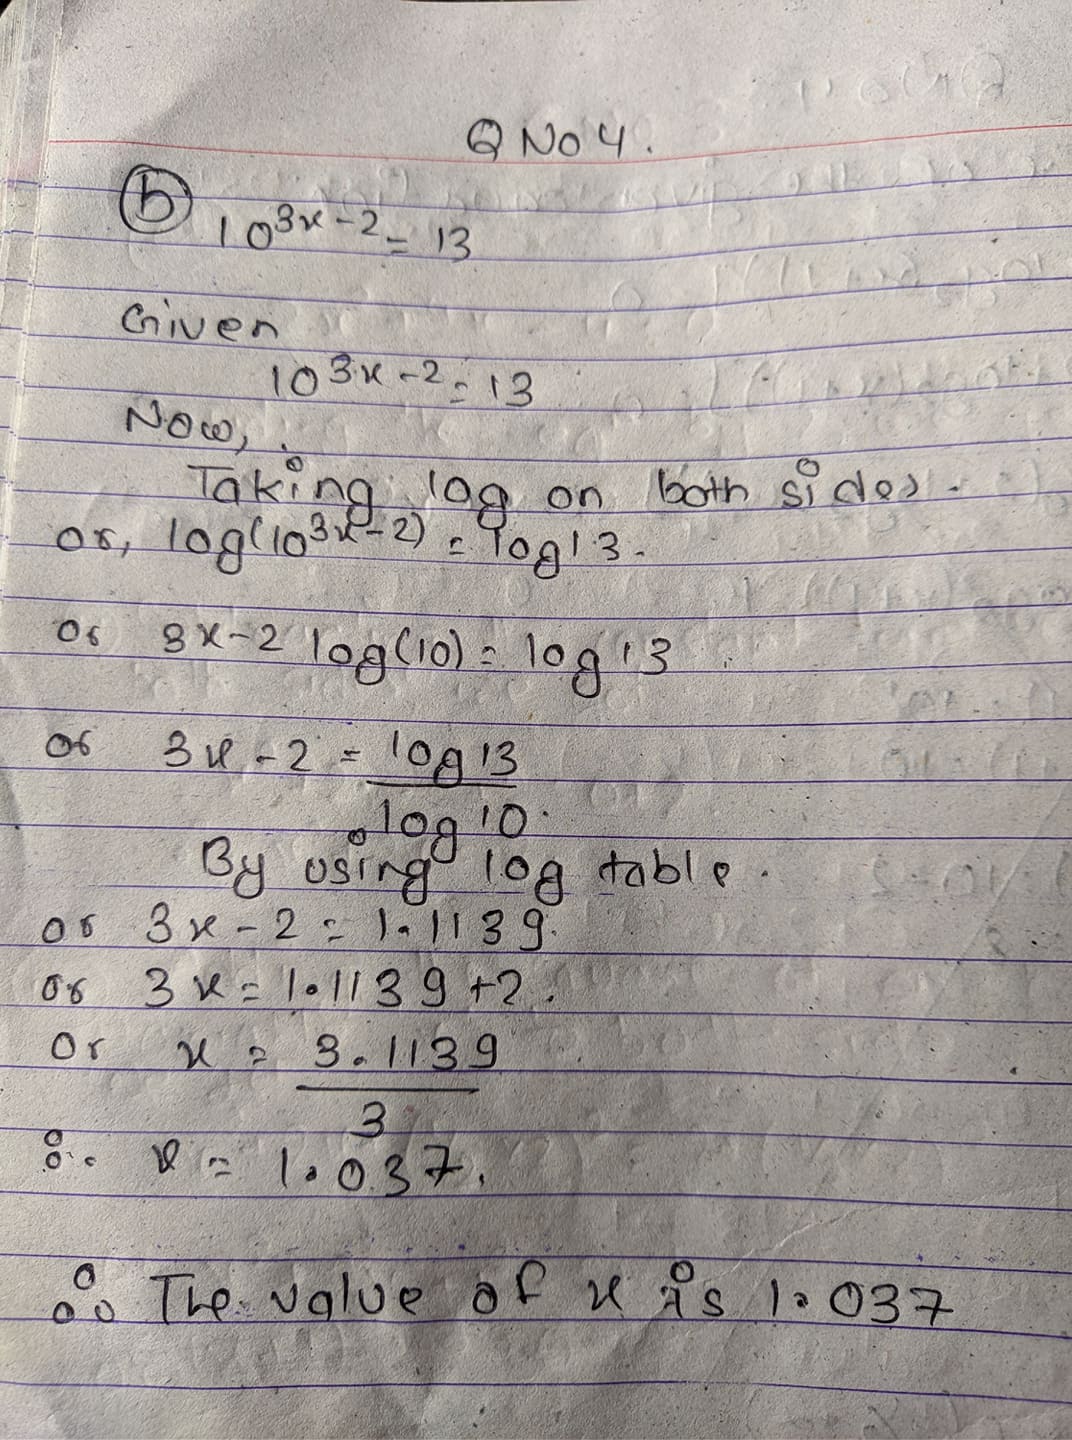 Q No 4.
(b) 10^{3x-2} = 13
Given
10^{3x-2} = 13
Now,
Taking log on both sides.
or, log(10^{3x-2}) = log13.
or 3x-2 log(10) = log13
or 3x-2 = log13
log10.
By using log table.
or 3x-2 = 1.1139.
or 3x = 1.1139+2.
or x = 3.1139
3
∴ x = 1.037.
∴ The value of x is 1.037